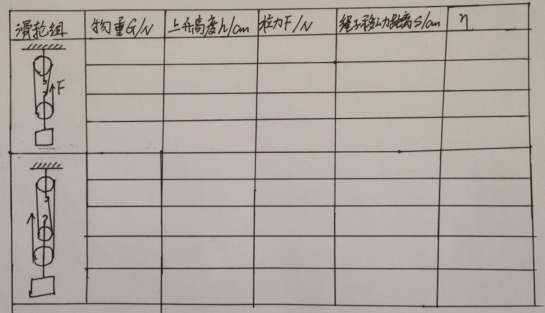 滑轮组 物重G/N 上升高度h/cm 拉力F/N 绳子移动距离S/cm η
F